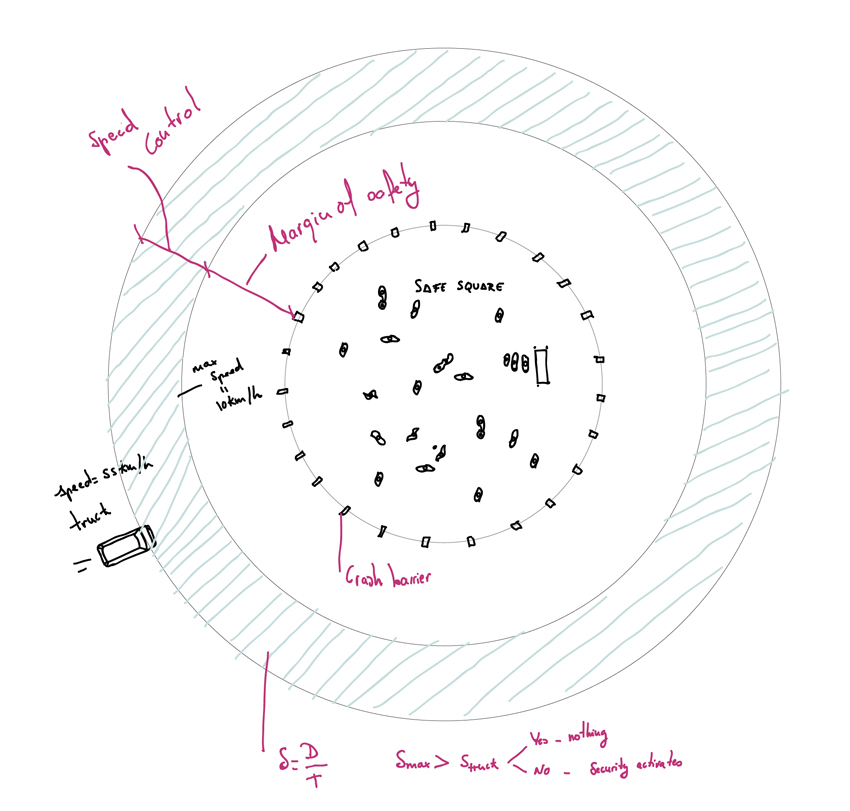 Speed
Control
Margin of safety
SAFE SQUARE
max
speed
=
10km/h
speed= 55 km/h
truck
Crash barrier
S = D
T
Smax > Struck
Yes - nothing
No - Security activates